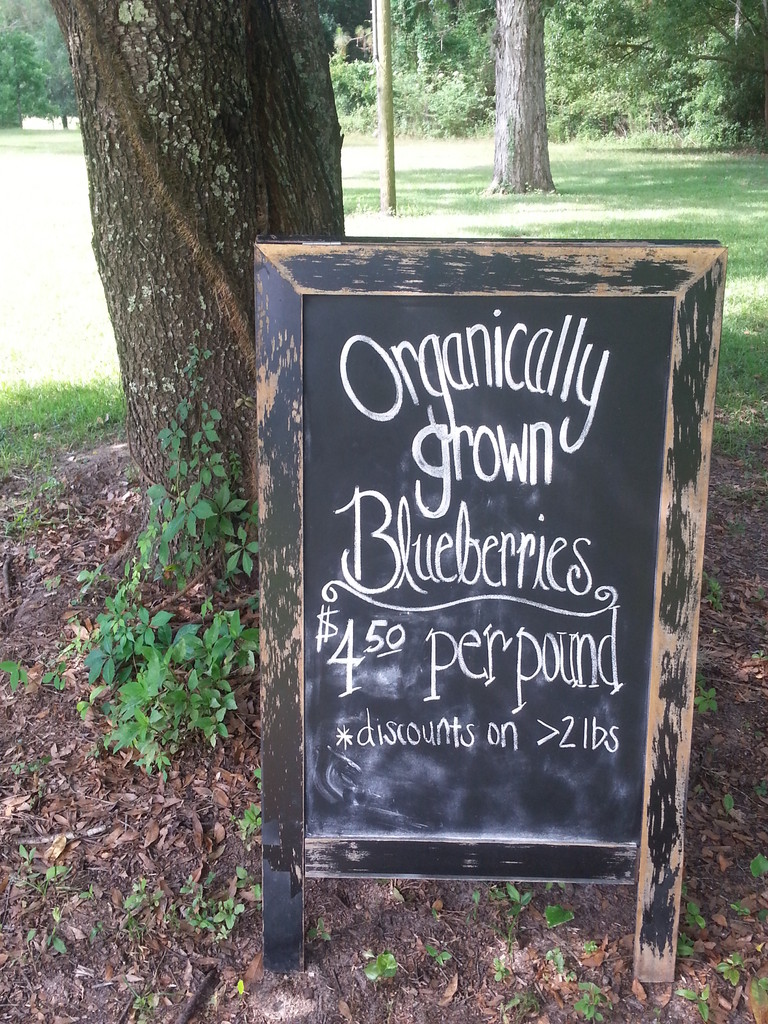 Organically
grown
Blueberries
$4.50 per pound
*discounts on >2 lbs